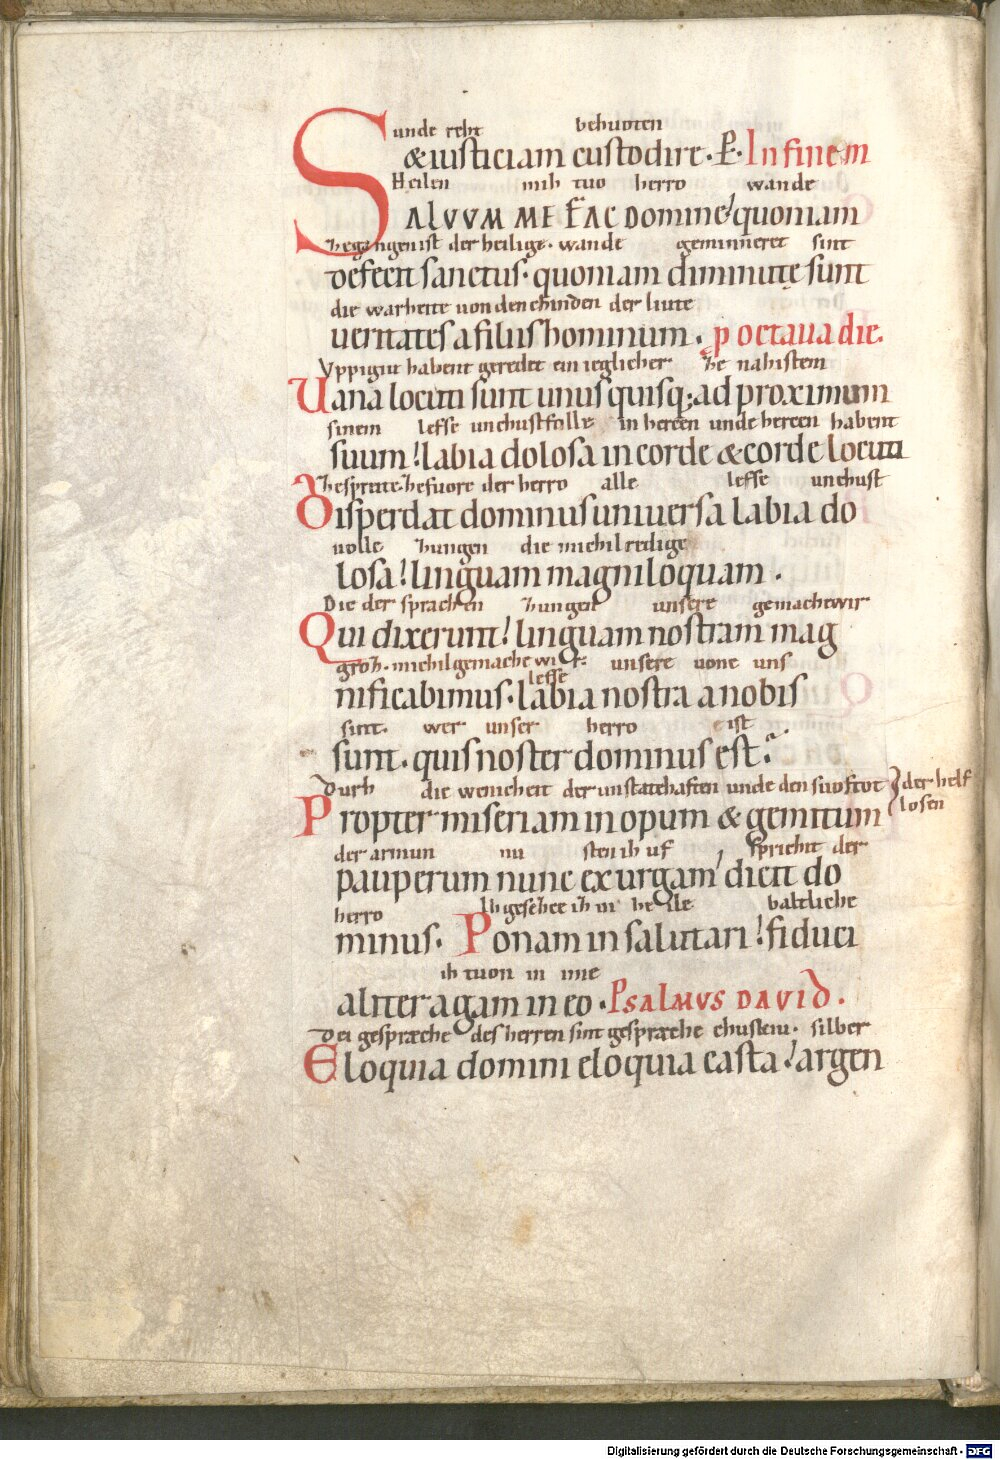 unde reht behuoten
&iusticiam custodire. P. In finem
Heilen mih tuo herro wande
SALVVM ME FAC Domine quoniam
zegangen ist der heilige. wande geminneret sint
defecit sanctus. quoniam diminutę sunt
die warheite uon den chinden der liute
ueritates a filiis hominum. p octaua die.
Vppigiu habent geredet ein ieglicher ze nahistem
Uana locuti sunt unusquisq; ad proximum
sinem lefse unchustfolle in hercen unde hercen habent
suum! labia dolosa in corde & corde locuti
zefuore der herro alle lefse unchust
Disperdat dominus uniuersa labia do
uolle zungen die michil redige
losa! linguam magniloquam.
Die der sprachen zungen unsere gemachewir
Qui dixerunt! linguam nostram mag
groz. michil gemache wir. unsere uone uns
lefse
nificabimus. labia nostra a nobis
sint. wer unser herro ist
sunt. quis noster dominus est?
Durh die wenicheit der unstatehaften unde den suoftot der helf
losen
Propter miseriam inopum & gemitum
der armun nu sten ih uf sprichit der
pauperum nunc exurgam dicit do
herro Ih gesecee ih in heile baltliche
minus. Ponam in salutari! fiduci
ih tuon in ime
aliter agam in eo. PSALMVS DAVID.
Dei gespræche des herren sint gespræche chusciu. silber
Eloquia domini eloquia casta! argen
Digitalisierung gefördert durch die Deutsche Forschungsgemeinschaft - DFG